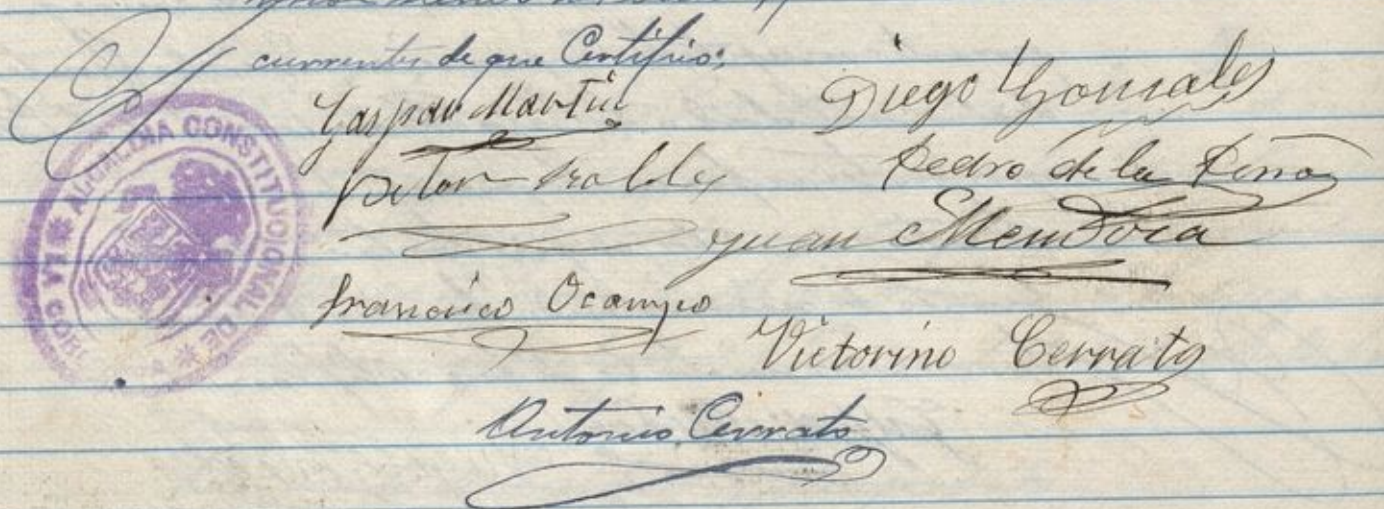 currentes de que Certifico:
Gaspar Martin
Diego Gonsales
Pedro de la Peña
Juan Mendoza
Francisco Ocampo
Victorino Cerrato
Antonio Cerrato
ALCALDIA CONSTITUCIONAL DE LA